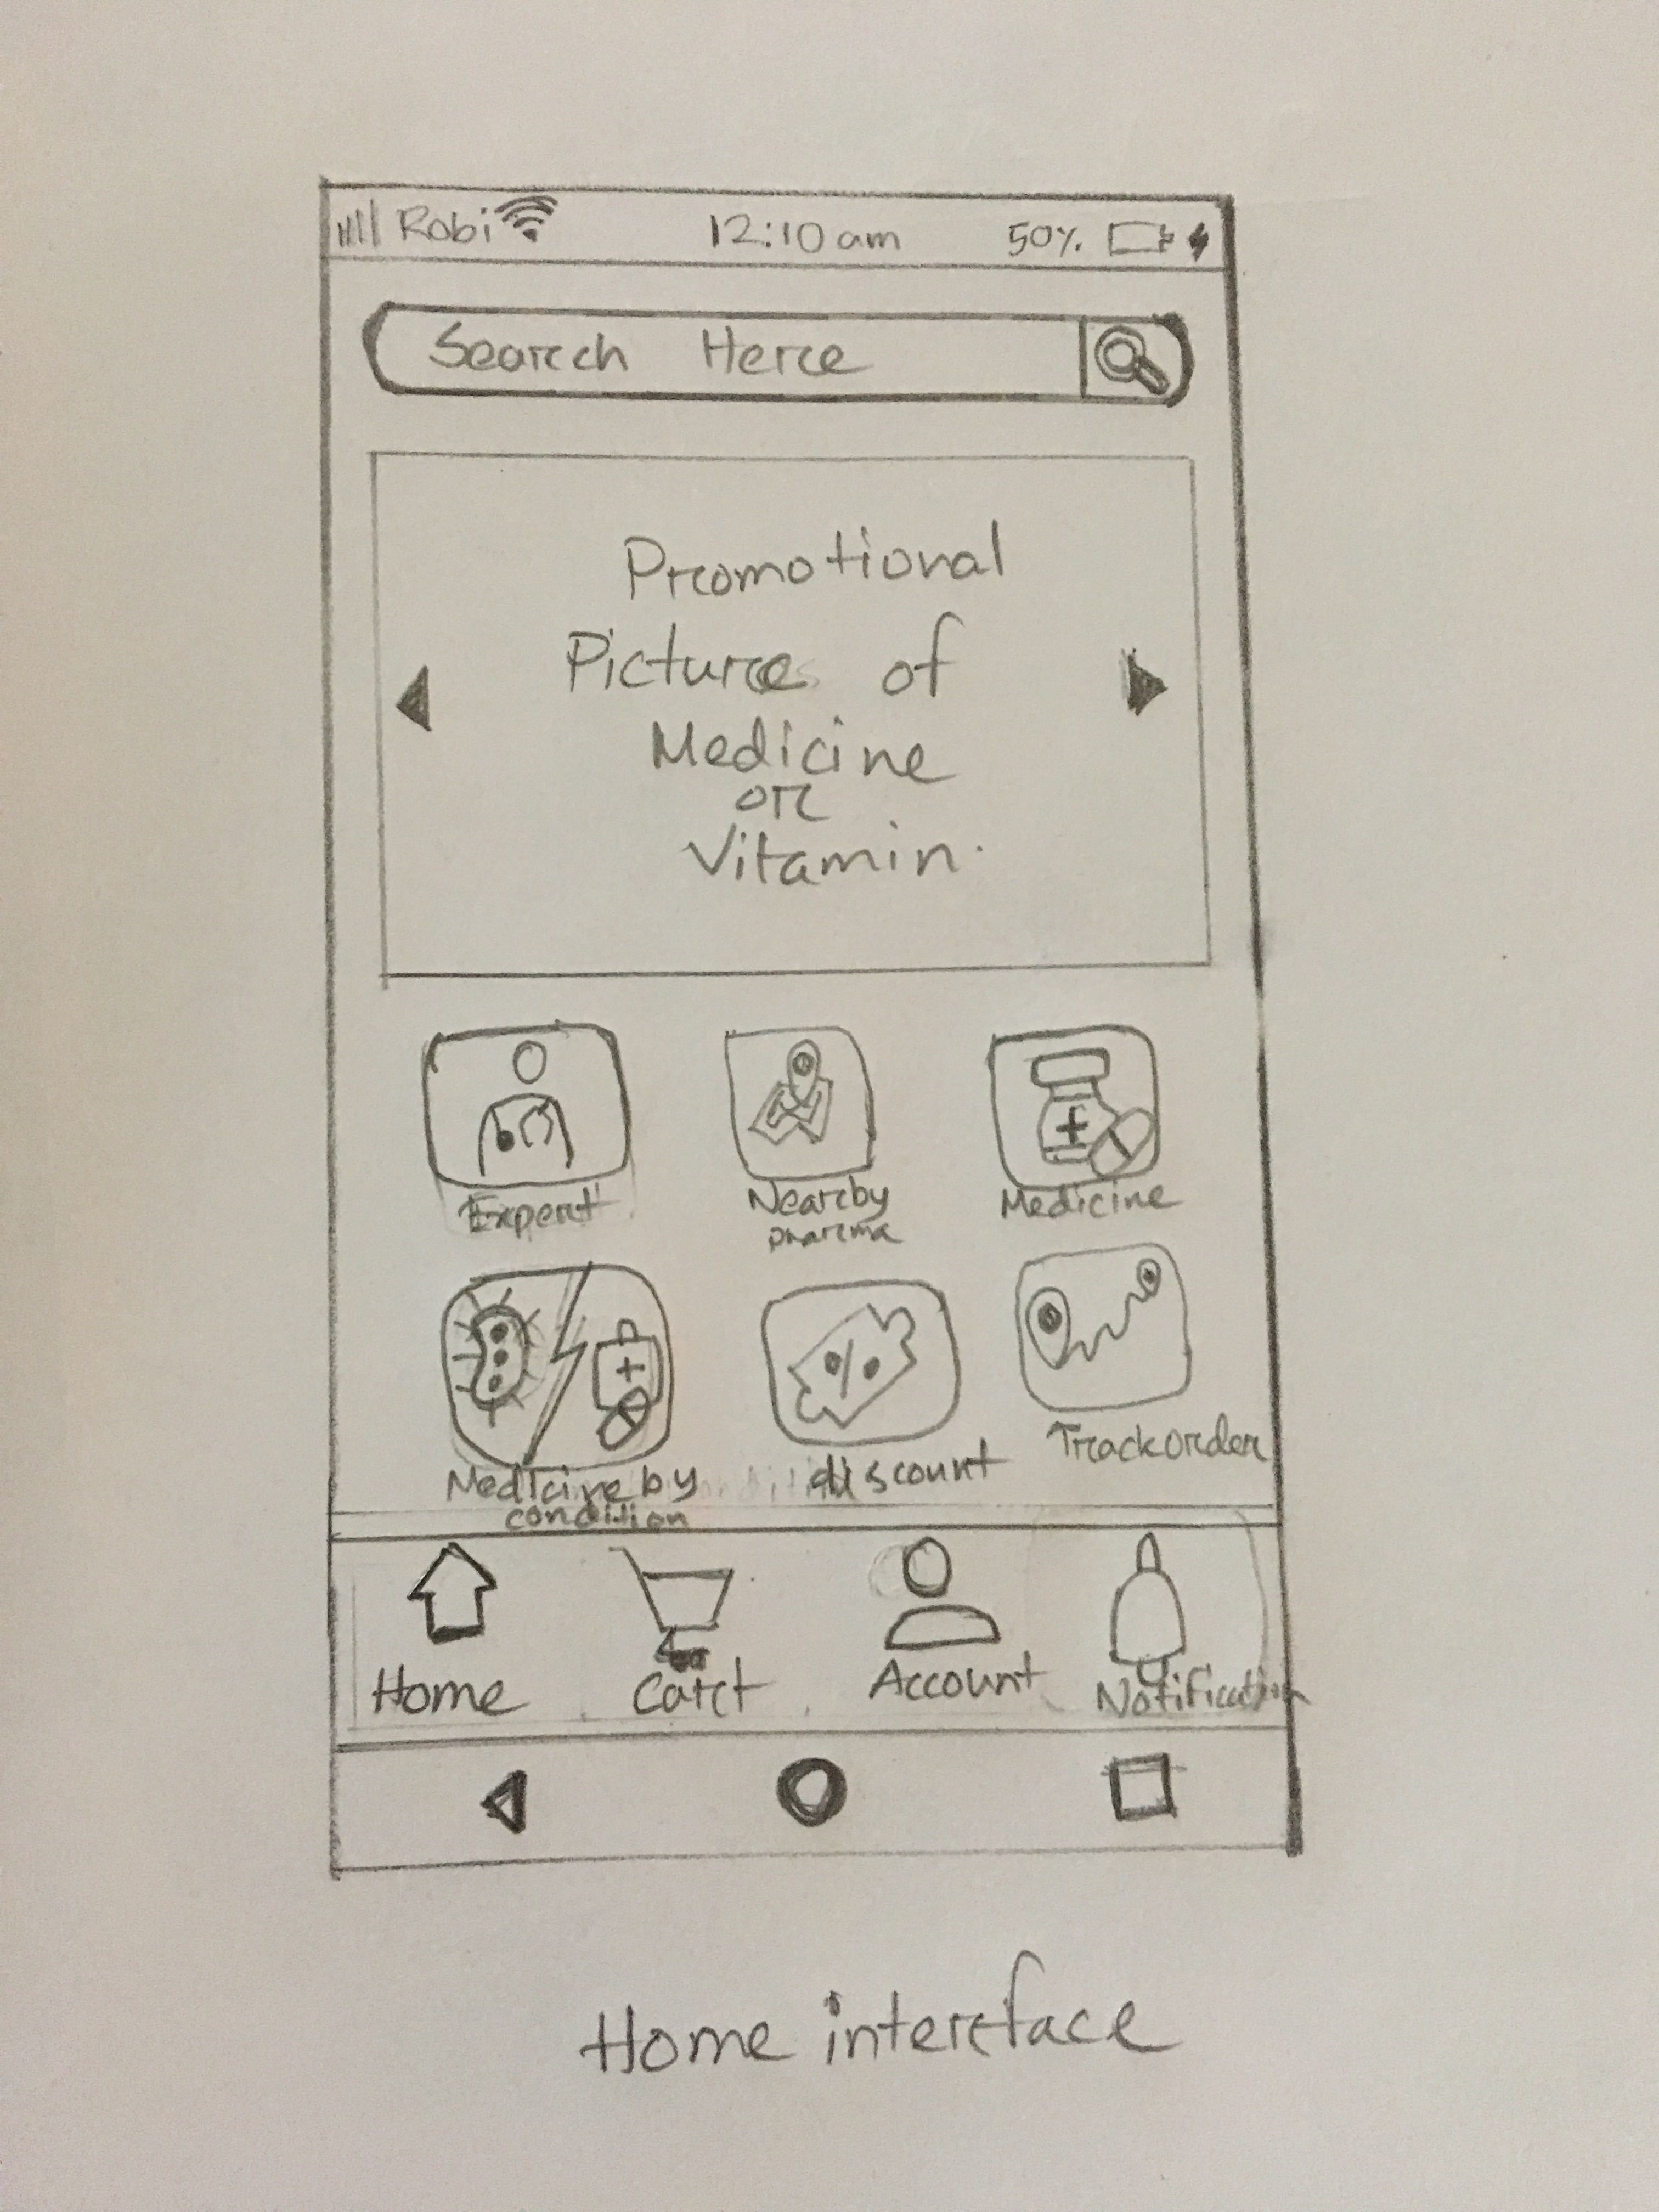 Robi 12:10 am 50%
Search Here
Promotional
Pictures of
Medicine
or
Vitamin.
Expert
Nearby
pharma
Medicine
Medicine by
condition
discount
Track order
Home Cart Account Notification
Home interface